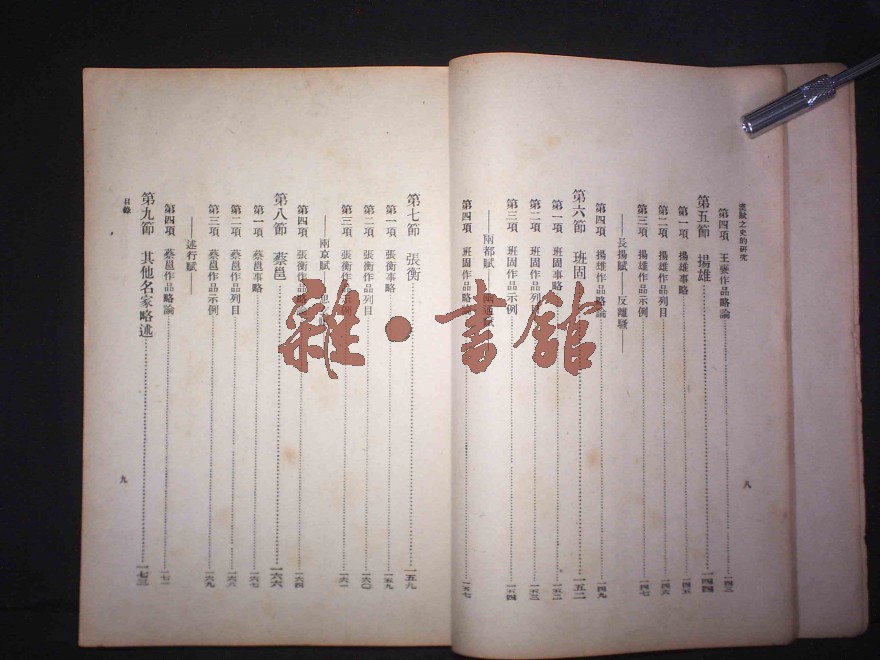 漢賦之史的研究
第四項 王褒作品略論 一四三
第五節 揚雄 一四四
第一項 揚雄事略 一四五
第二項 揚雄作品列目 一四六
第三項 揚雄作品示例 一四七
——長揚賦——反離騷——
第四項 揚雄作品略論 一四九
第六節 班固 一五二
第一項 班固事略 一五二
第二項 班固作品列目 一五三
第三項 班固作品示例 一五四
——兩都賦
第四項 班固作品略 一五七
八
第七節 張衡 一五九
第一項 張衡事略 一五九
第二項 張衡作品列目 一六〇
第三項 張衡作品示例 一六一
——兩京賦
第四項 張衡作品略論 一六四
第八節 蔡邕 一六六
第一項 蔡邕事略 一六七
第二項 蔡邕作品列目 一六八
第三項 蔡邕作品示例 一六九
——述行賦——
第四項 蔡邕作品略論 一七一
第九節 其他名家略述 一七三
目錄
九
雜·書館